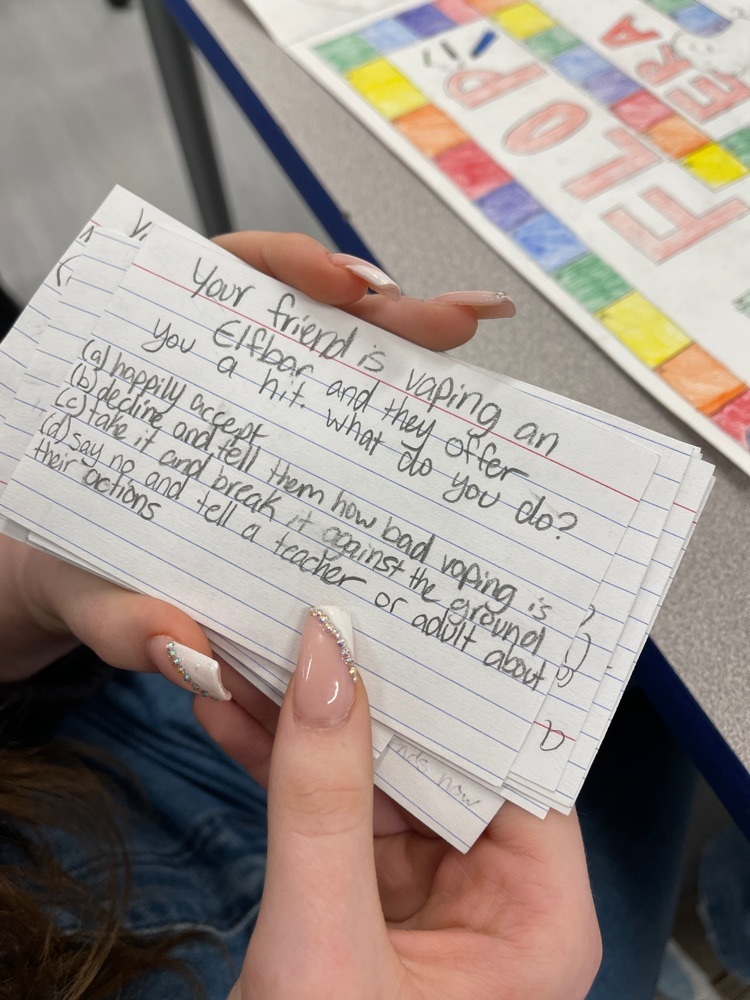 Your friend is vaping an
Elfbar and they offer
you a hit. What do you do?
(a) happily accept
(b) decline and tell them how bad vaping is
(c) take it and break it against the ground
(d) say no and tell a teacher or adult about
their actions
nds now
FLOP
ERA